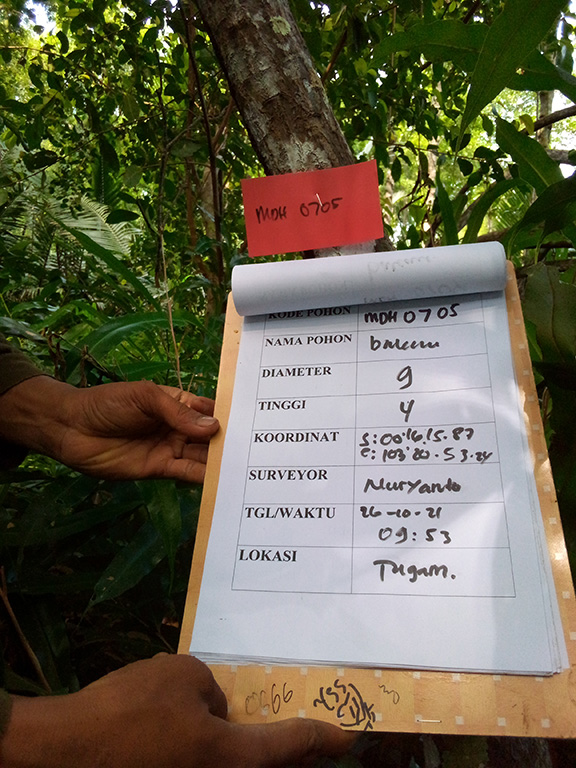 MDH 0705
KODE POHON MDH 0705
NAMA POHON bakau
DIAMETER 9
TINGGI 4
KOORDINAT S:00°16'15.87
E: 103°20.53.24
SURVEYOR Nuryanto
TGL/WAKTU 26-10-21
09:53
LOKASI Tugam.
0566